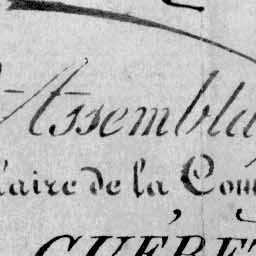 l'Assembla
laire de la Com
GUÉRET